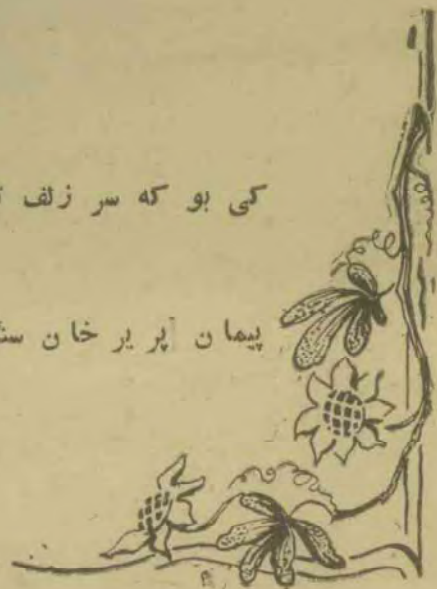 کی بو که سر زلف
پیمان پر یر خان